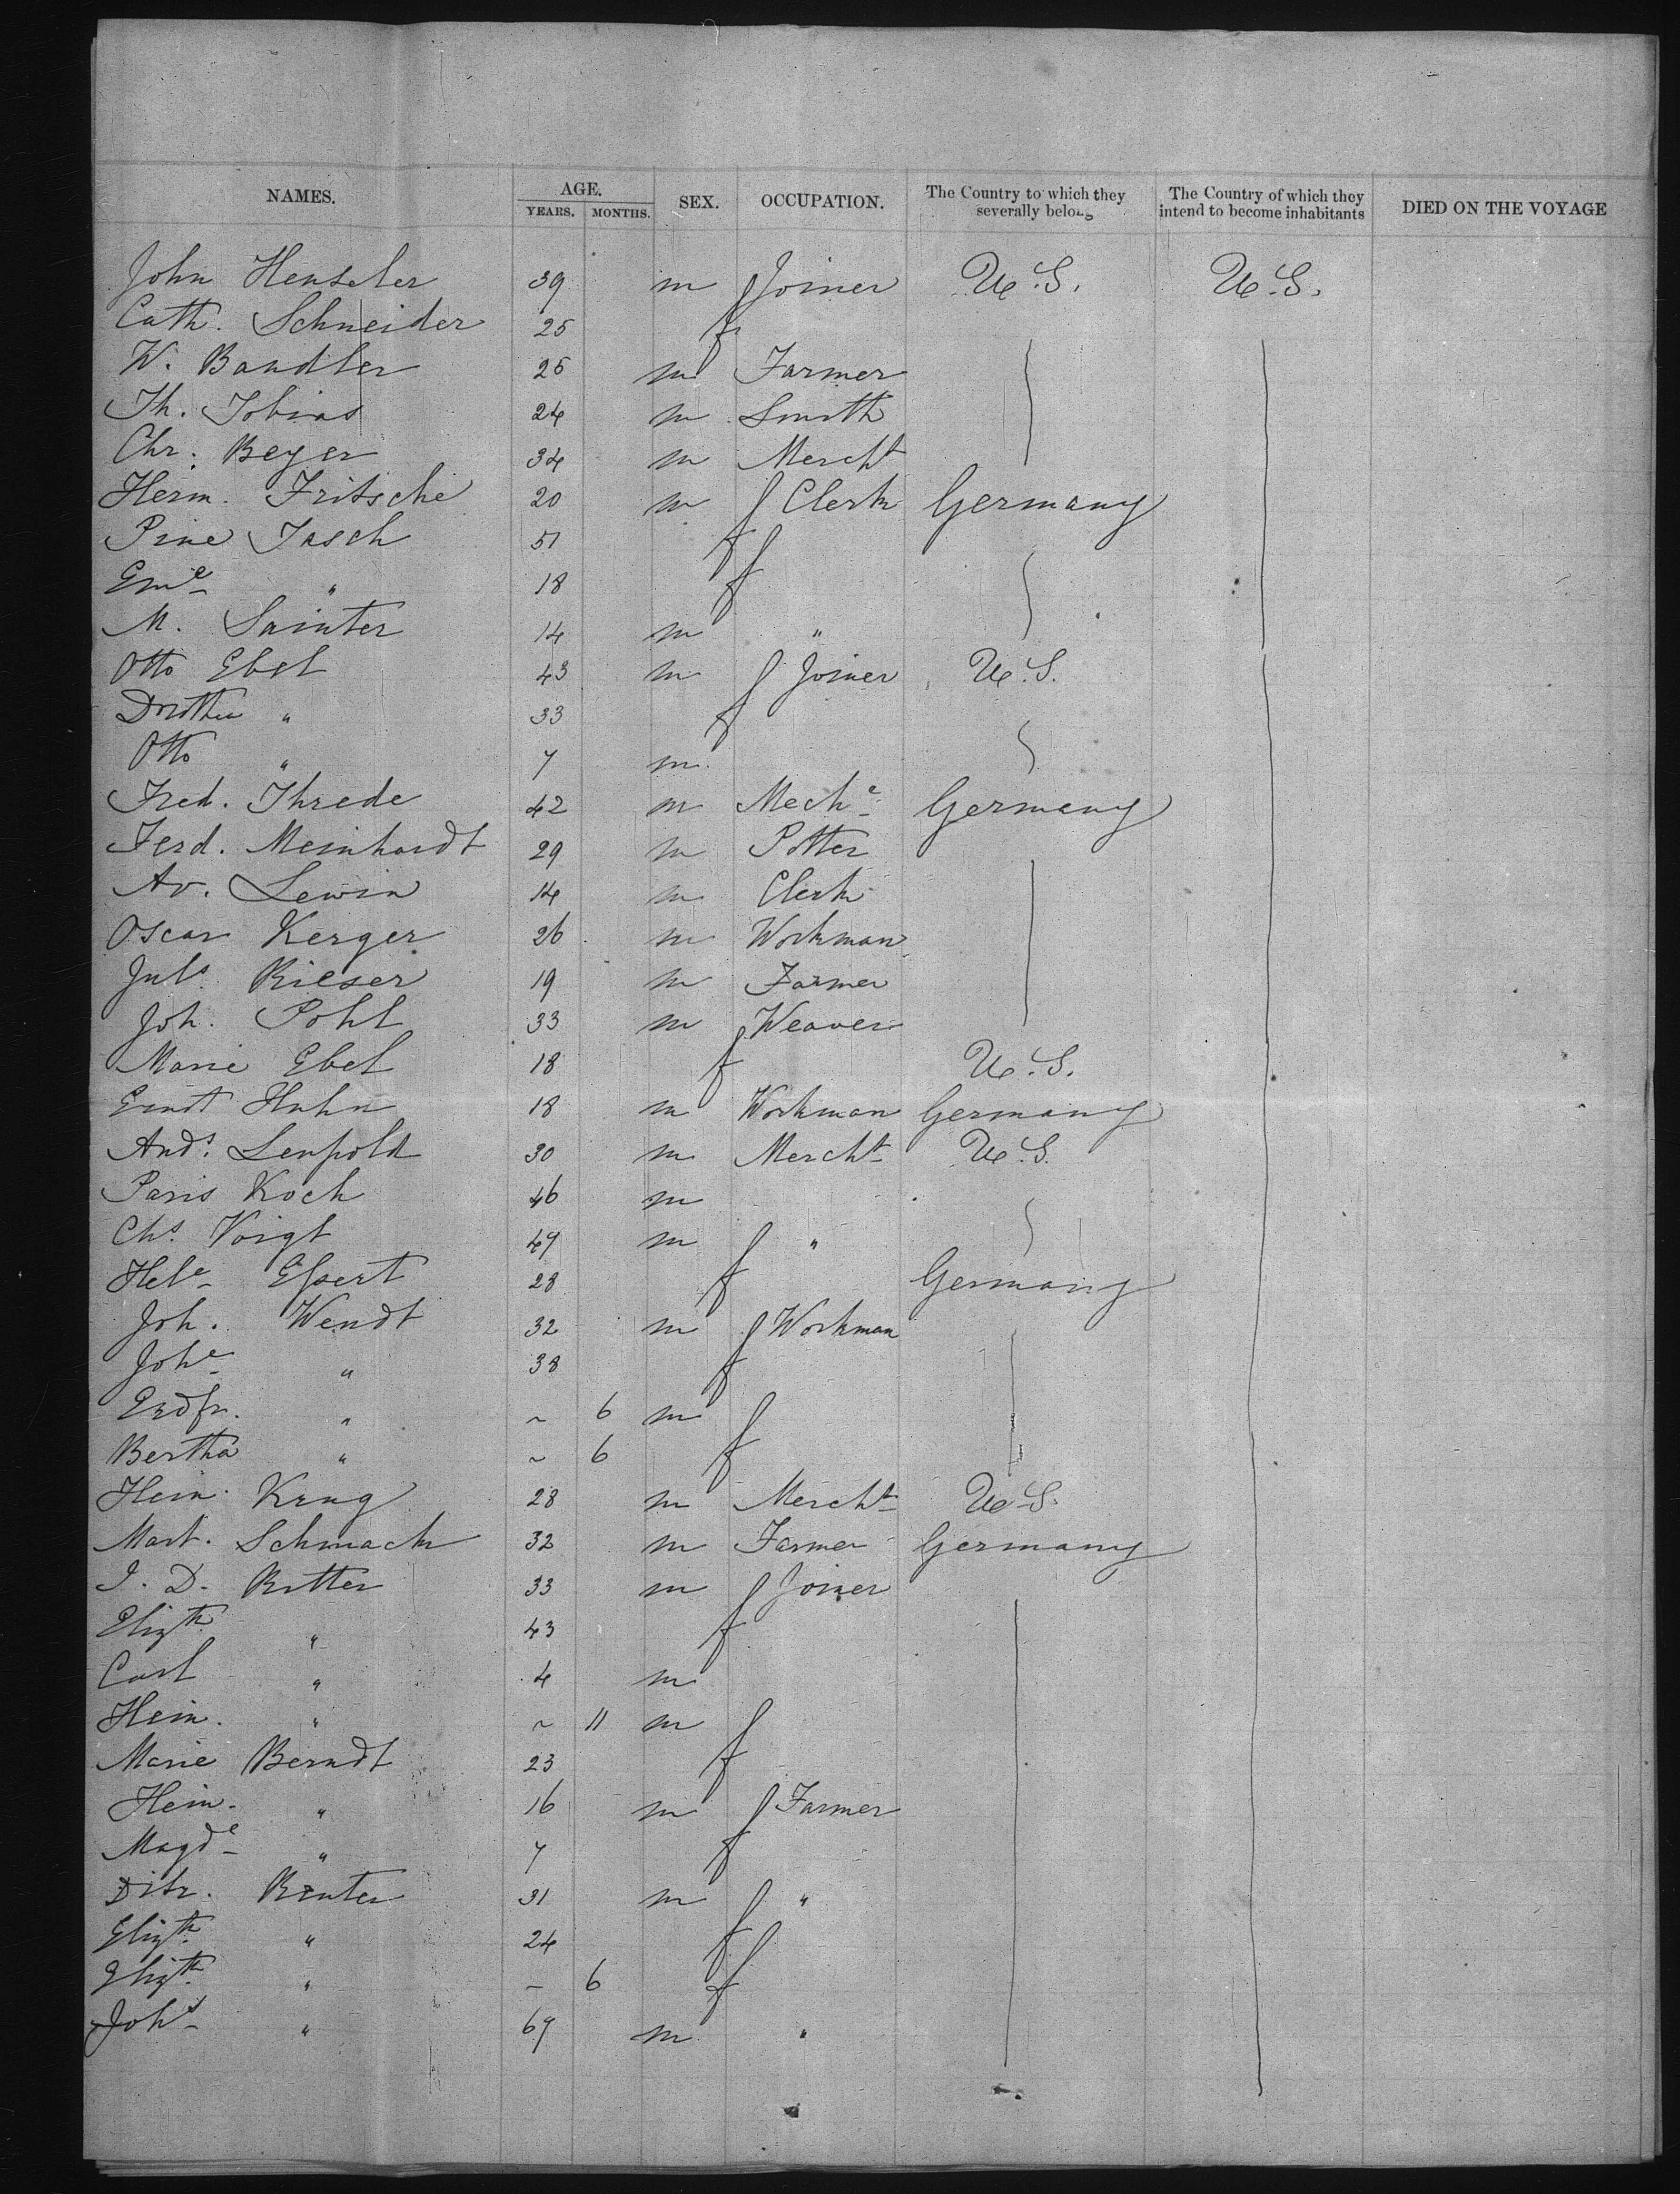 NAMES. AGE. YEARS. MONTHS. SEX. OCCUPATION. The Country to which they severally belong The Country of which they intend to become inhabitants DIED ON THE VOYAGE
John Henseler 39 m Joiner U.S. U.S.
Cath. Schneider 25 f
W. Bandler 25 m Farmer
Th. Tobias 24 m Smith
Chr. Beyer 34 m Mercht
Herm. Fritsche 20 m Clerk Germany
Pine Jasch 51 f
Eme " 18 f
M. Sainter 14 m "
Otto Ebel 43 m Joiner U.S.
Dorothea " 33 f
Otto " 7 m
Fred. Threde 42 m Meche Germany
Ferd. Meinhardt 29 m Potter
Av. Lewin 14 m Clerk
Oscar Kerger 26 m Workman
Juls Rieser 19 m Farmer
Joh. Pohl 33 m Weaver
Marie Ebel 18 f U.S.
Ernst Huhn 18 m Workman Germany
Ands Leupold 30 m Mercht U.S.
Paris Koch 46 m
Chs. Voigt 47 m "
Hele Essert 28 f Germany
Joh. Wendt 32 m Workman
Johe " 38 f
Erdfr. " ~ 6 m
Bertha " ~ 6 f
Hein. Krug 28 m Mercht U.S.
Mart. Schmach 32 m Farmer Germany
J. D. Ritter 33 m Joiner
Elizth " 43 f
Carl " 4 m
Hein. " ~ 11 m
Marie Berndt 23 f
Hein. " 16 m Farmer
Magde " 7 f
Ditr. Reuter 31 m "
Elizth " 24 f
Elizth " – 6 f
Johs " 67 m "